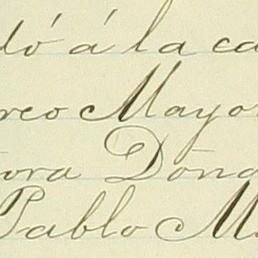 dó á la ca
rco Mayo
ora Doña
Pablo M